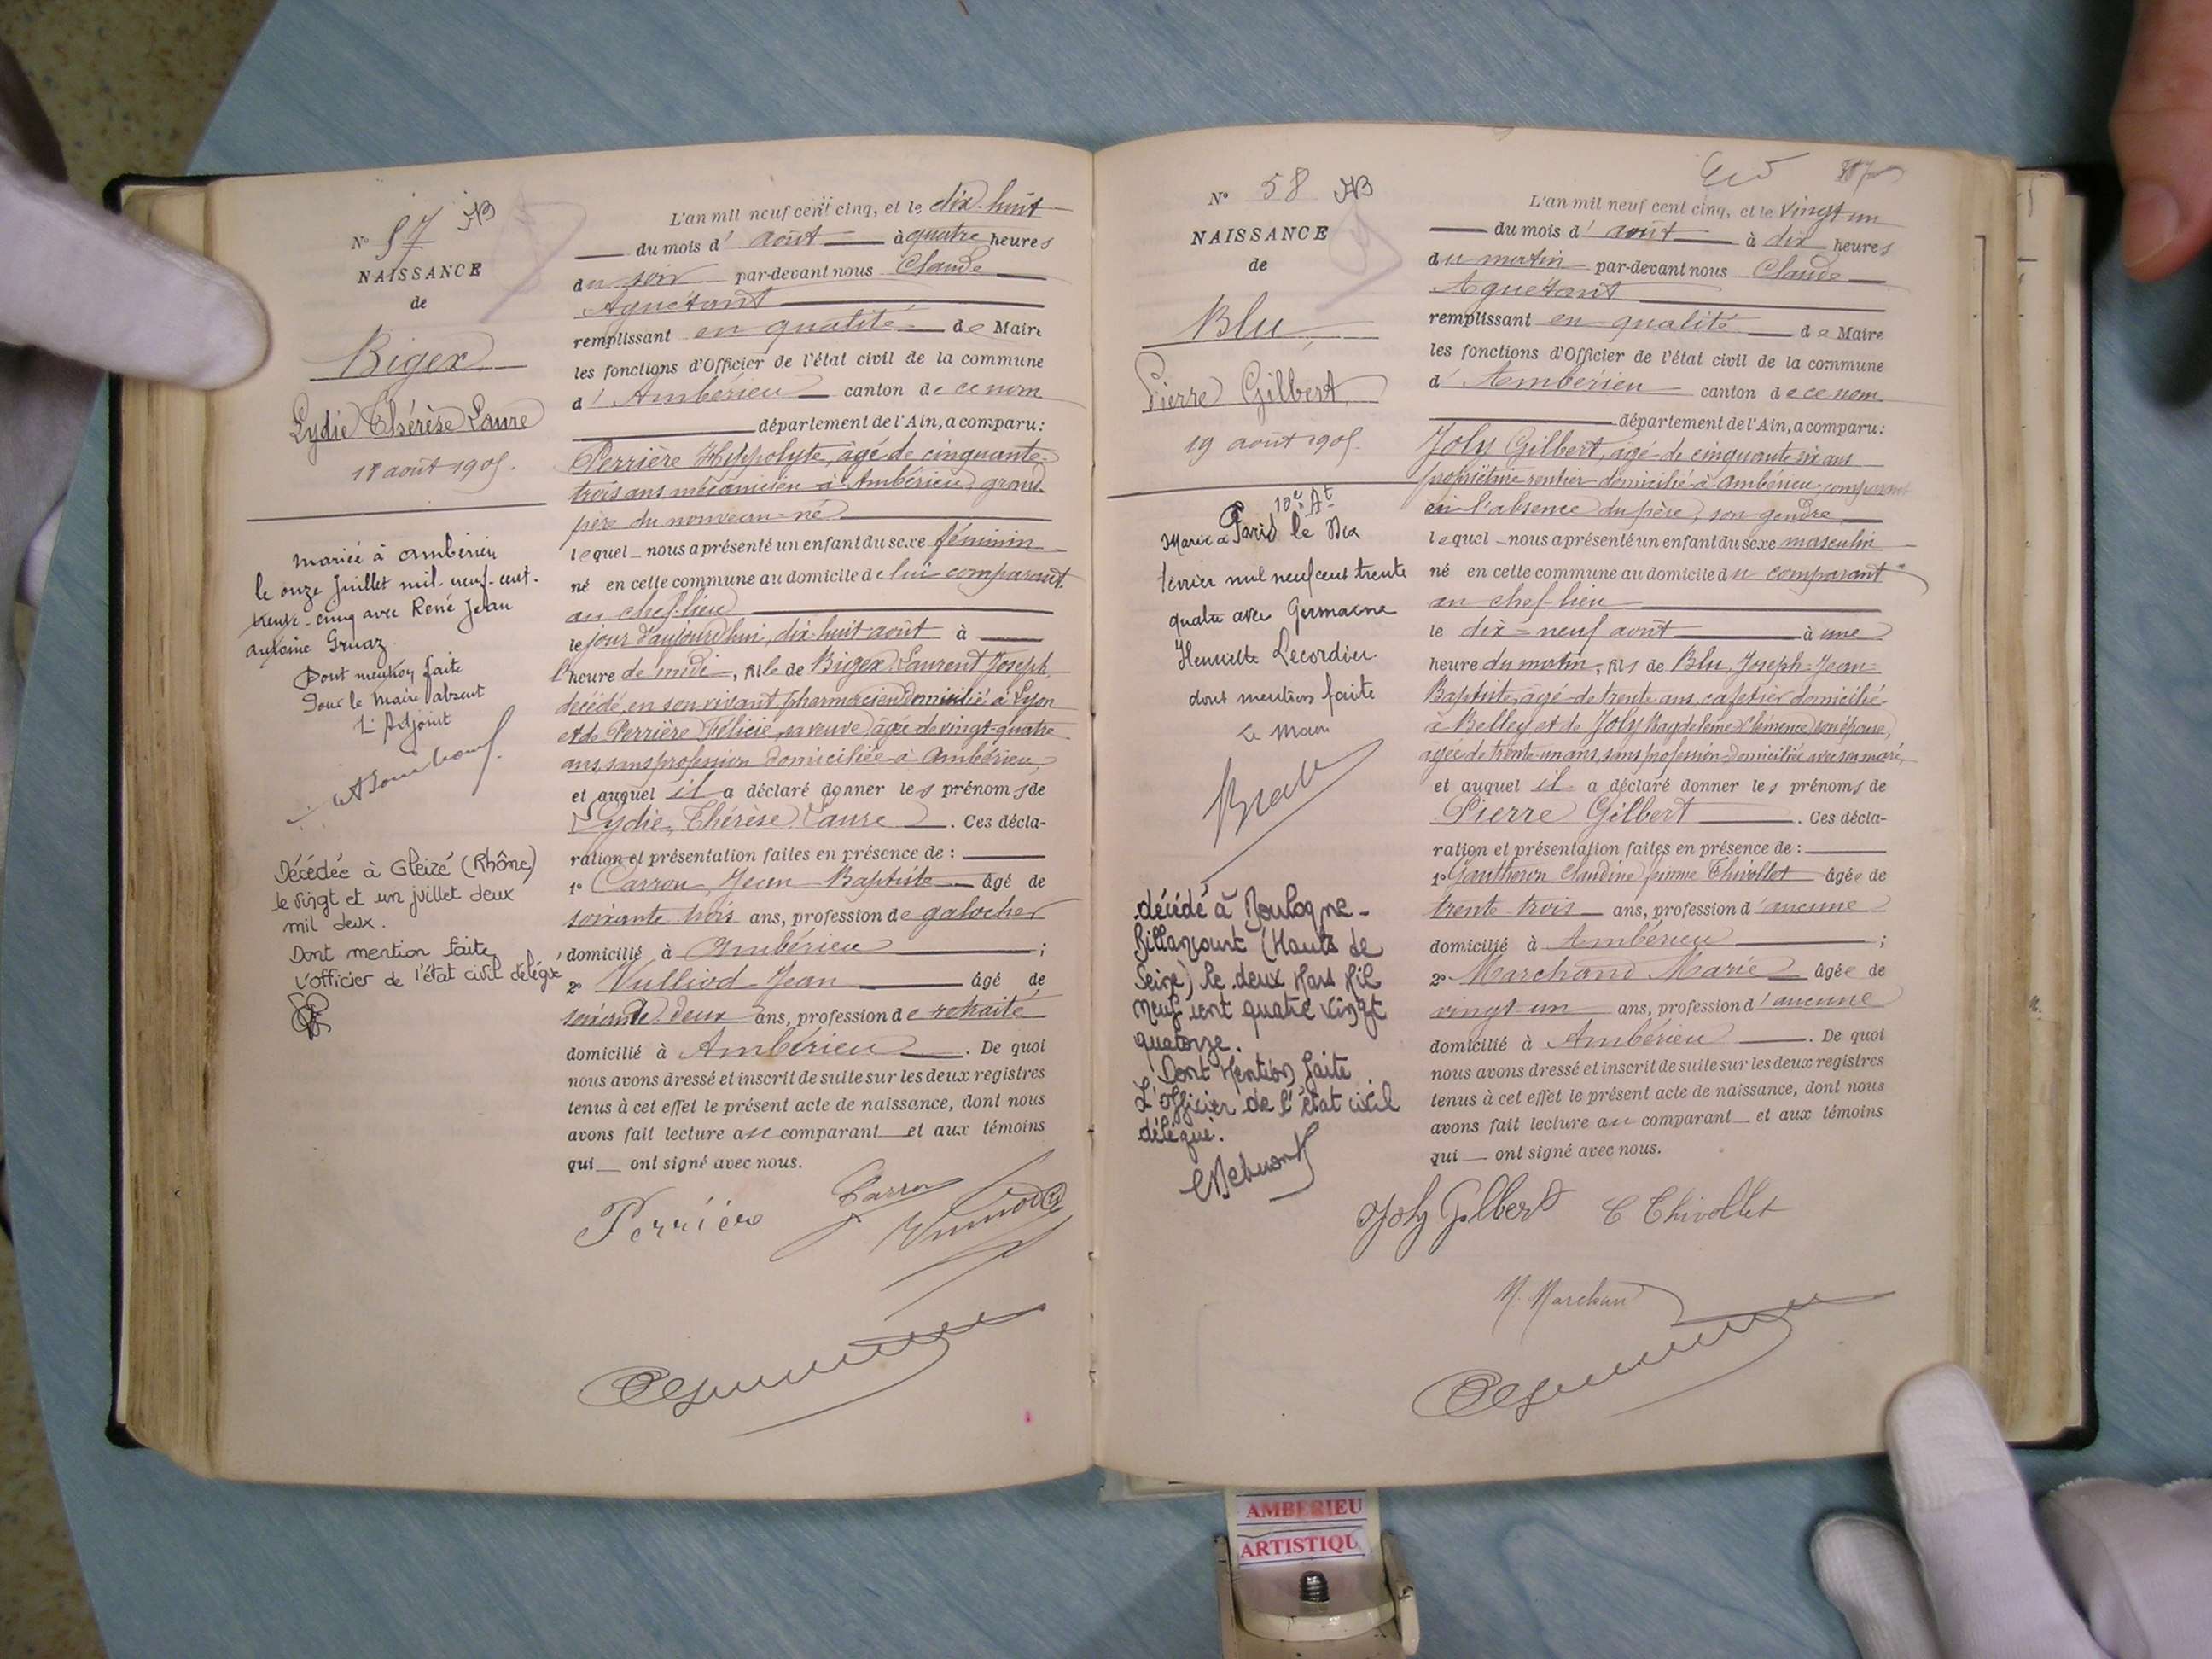 N° 57
NAISSANCE
de
Bigex
Lydie Thérèse Laure
18 août 1905.
Mariée à Ambérieu
le onze Juillet mil-neuf-cent-
trente-cinq avec René Jean
Antoine Gruaz
Dont mention faite
Pour le Maire absent
L'Adjoint
Décédée à Gleizé (Rhône)
le vingt et un juillet deux
mil deux.
Dont mention faite
L'officier de l'état civil délégué
L'an mil neuf cent cinq, et le dix-huit
du mois d'août à quatre heures
du soir par-devant nous Claude
Aguétant
remplissant en qualité de Maire
les fonctions d'Officier de l'état civil de la commune
d'Ambérieu canton de ce nom
département de l'Ain, a comparu:
Perrière Hippolyte, âgé de cinquante-
trois ans mécanicien à Ambérieu, grand-
père du nouveau-né
lequel nous a présenté un enfant du sexe féminin
né en cette commune au domicile de lui comparant
au chef-lieu
le jour d'aujourd'hui, dix-huit août à
l'heure de midi, fille de Bigex Laurent Joseph,
décédé, en son vivant pharmacien domicilié à Lyon
et de Perrière Félicie, sa veuve, âgée de vingt-quatre
ans, sans profession domiciliée à Ambérieu,
et auquel il a déclaré donner les prénoms de
Lydie, Thérèse Laure. Ces décla-
ration et présentation faites en présence de :
1° Carron Jean-Baptiste âgé de
soixante trois ans, profession de galocher
domicilié à Ambérieu ;
2° Vulliod Jean âgé de
soixante deux ans, profession de retraité
domicilié à Ambérieu. De quoi
nous avons dressé et inscrit de suite sur les deux registres
tenus à cet effet le présent acte de naissance, dont nous
avons fait lecture au comparant et aux témoins
qui ont signé avec nous.
Perrière Carron
N° 58
NAISSANCE
de
Blu
Pierre Gilbert
19 août 1905.
Marié à Paris 10e At le dix
février mil neuf cent trente
quatre avec Germaine
Henriette Lecordier
dont mention faite
Le Maire
décédé à Boulogne-
Billancourt (Hauts de
Seine) le deux Mars Mil
neuf cent quatre vingt
quatorze.
Dont Mention faite
L'officier de l'état civil
délégué.
L'an mil neuf cent cinq, et le vingt-un
du mois d'août à dix heures
du matin par-devant nous Claude
Aguétant
remplissant en qualité de Maire
les fonctions d'Officier de l'état civil de la commune
d'Ambérieu canton de ce nom
département de l'Ain, a comparu:
Joly Gilbert, âgé de cinquante six ans
propriétaire rentier domicilié à Ambérieu, comparant
en l'absence du père, son gendre
lequel nous a présenté un enfant du sexe masculin
né en cette commune au domicile du comparant
au chef-lieu
le dix-neuf août à une
heure du matin, fils de Blu, Joseph-Jean-
Baptiste, âgé de trente ans, cafetier domicilié
à Belley et de Joly Magdeleine Clémence, son épouse,
âgée de trente-un ans, sans profession domiciliée avec son mari,
et auquel il a déclaré donner les prénoms de
Pierre Gilbert. Ces décla-
ration et présentation faites en présence de :
1° Gautheron Claudine femme Thivollet âgée de
trente trois ans, profession d'aucune
domicilié à Ambérieu ;
2° Marchand Marie âgée de
vingt-un ans, profession d'aucune
domicilié à Ambérieu. De quoi
nous avons dressé et inscrit de suite sur les deux registres
tenus à cet effet le présent acte de naissance, dont nous
avons fait lecture au comparant et aux témoins
qui ont signé avec nous.
Joly Gilbert C Thivollet
M. Marchand
AMBERIEU
ARTISTIQU